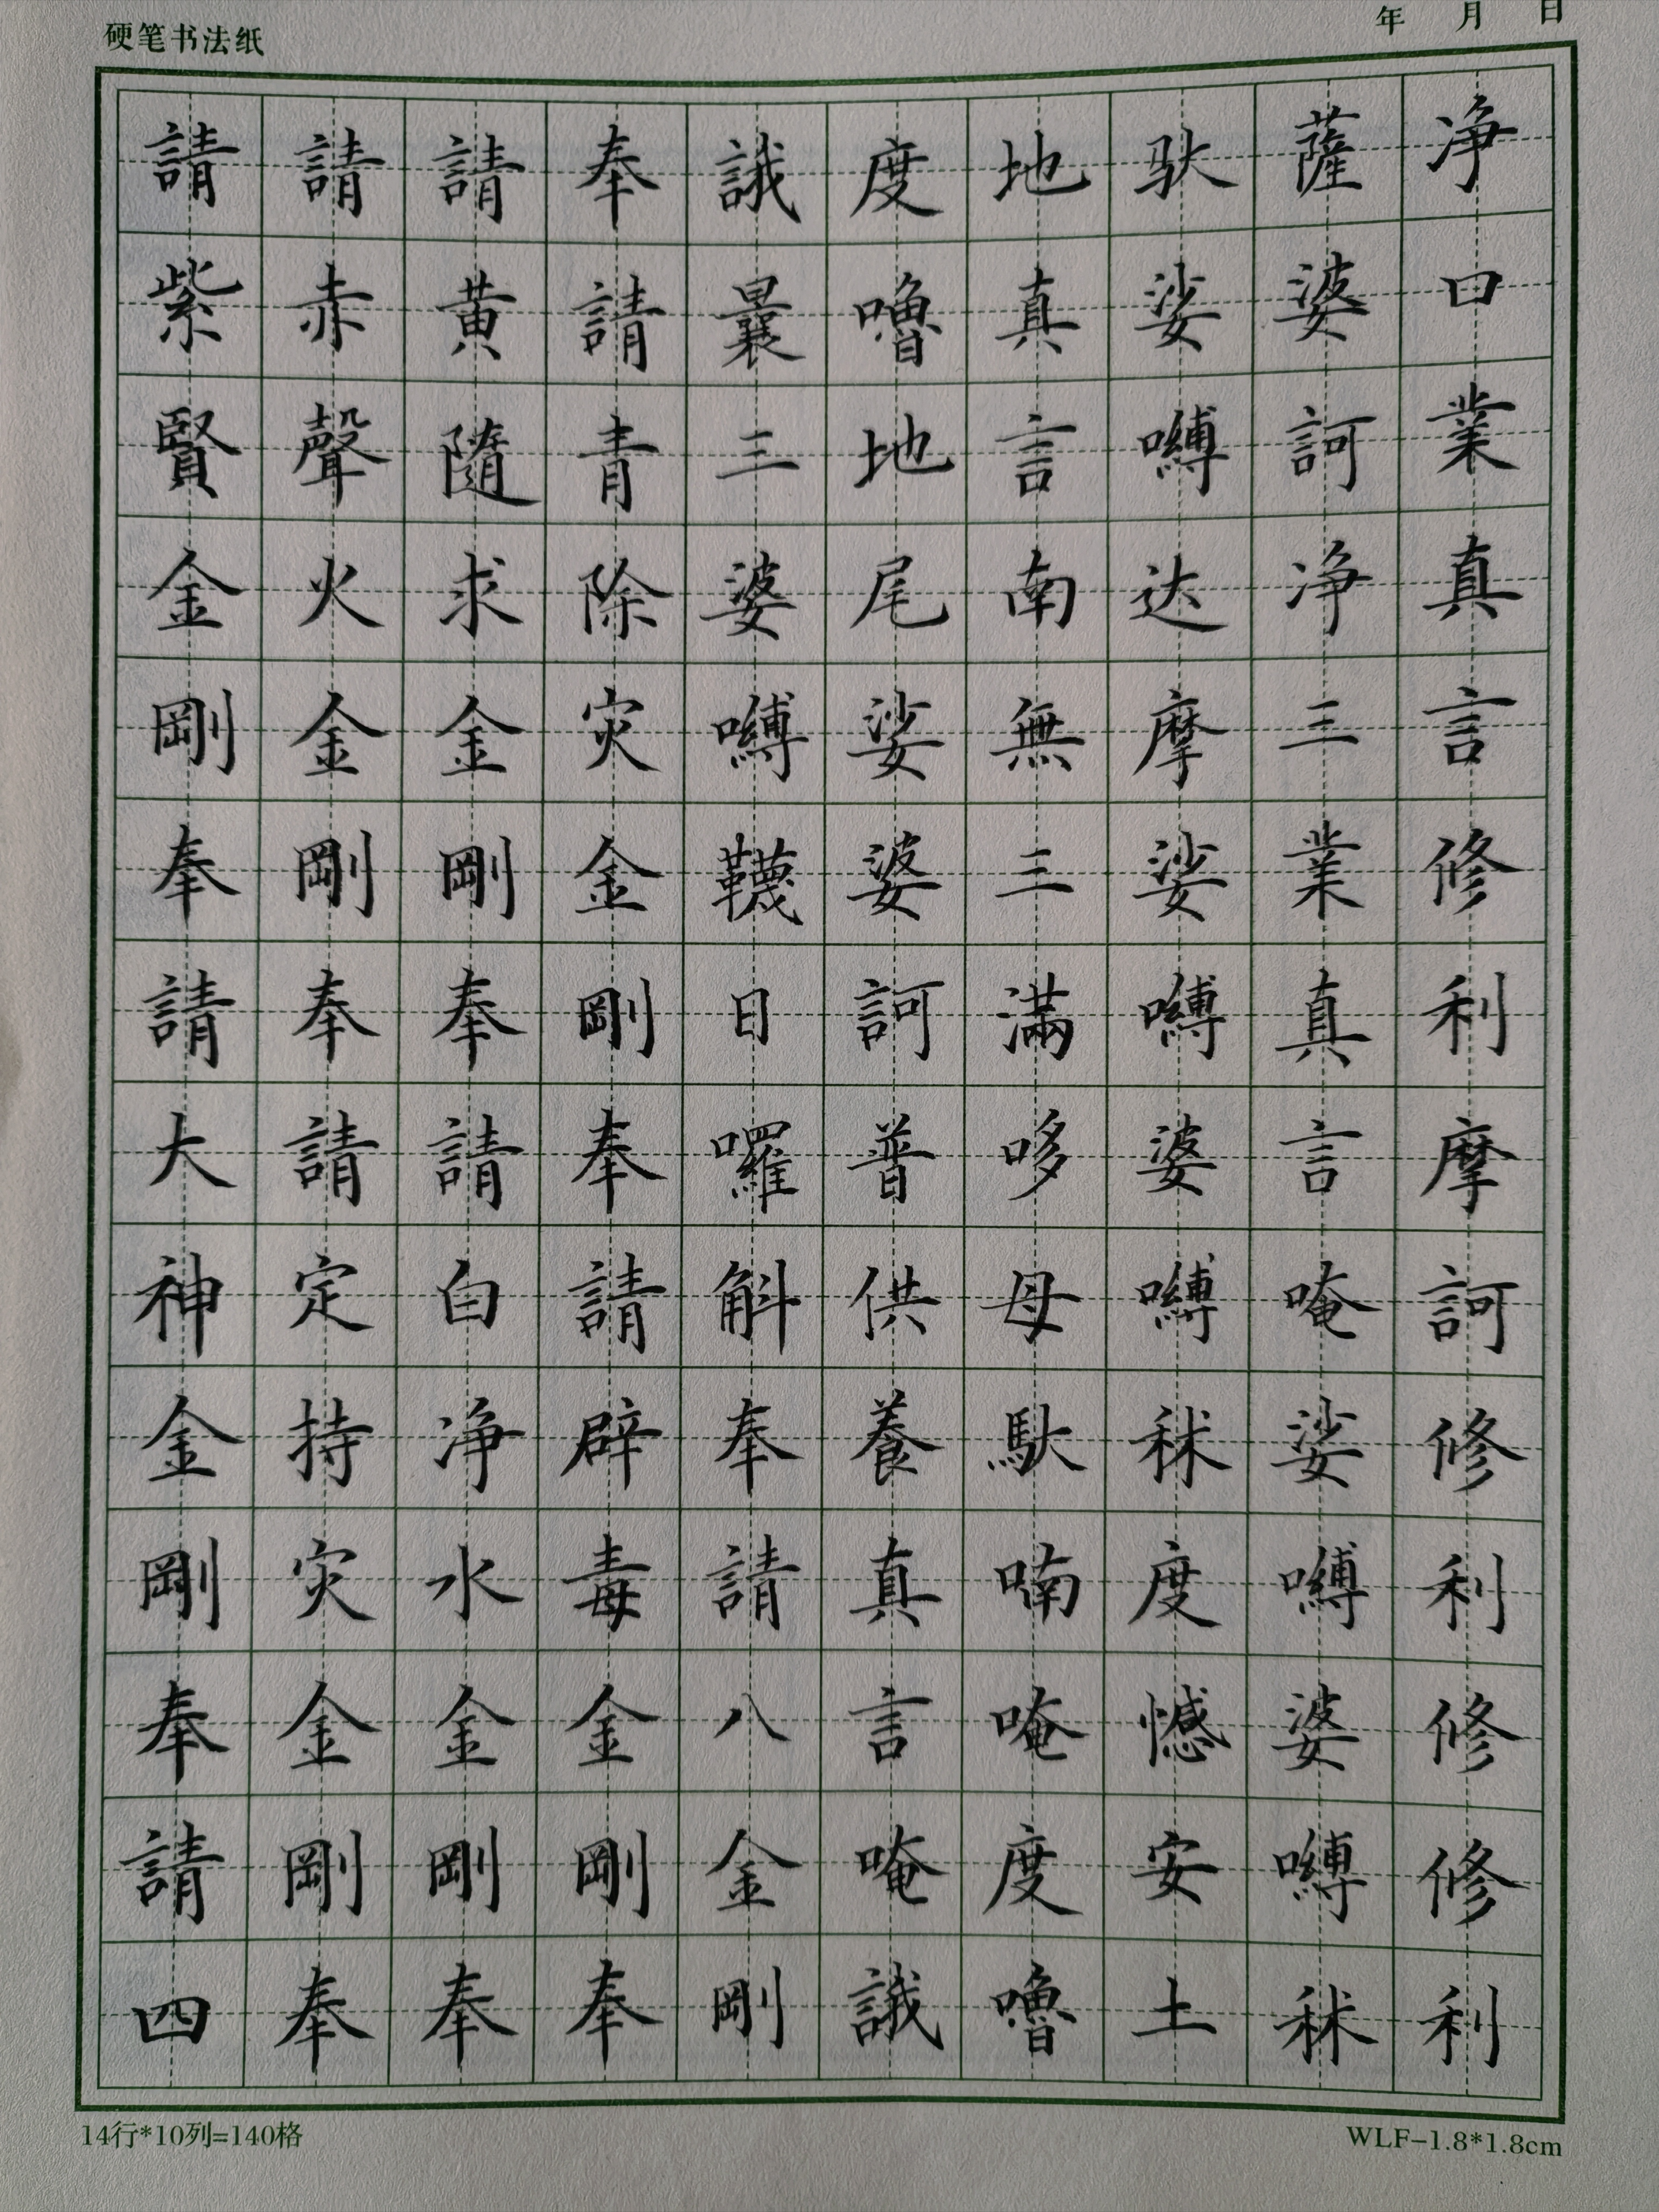 硬笔书法纸
年 月 日
净口業真言修利摩訶修利修修利
薩婆訶净三業真言唵娑嚩婆嚩秫
馱娑嚩达摩娑嚩婆嚩秫度憾安土
地真言南無三滿哆母馱喃唵度嚕
度嚕地尾娑婆訶普供養真言唵誐
誐曩三婆嚩韈日囉斛奉請八金剛
奉請青除灾金剛奉請辟毒金剛奉
請黃隨求金剛奉請白净水金剛奉
請赤聲火金剛奉請定持灾金剛奉
請紫賢金剛奉請大神金剛奉請四
14行*10列=140格
WLF-1.8*1.8cm